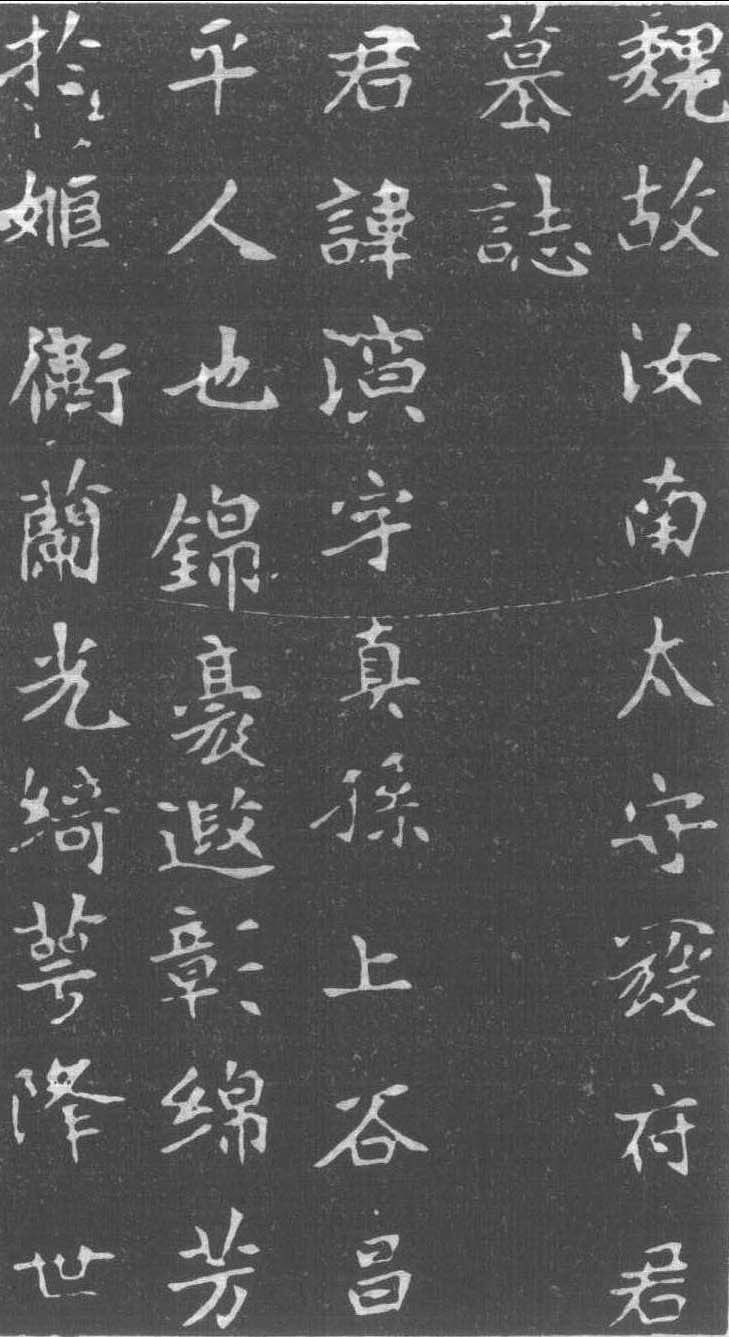 魏故汝南太守寇府君
墓誌
君諱演字真孫上谷昌
平人也錦裔遐彰綿芳
於姬衛蘭光綺萼隆世